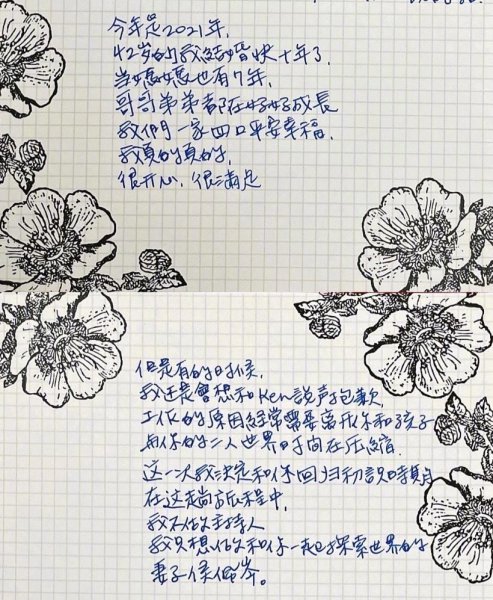 今年是2021年,
42岁的我结婚快十年了.
当妈妈也有7年,
哥哥弟弟都在好好成長
我們一家四口平安幸福.
我真的真的,
很开心.很满足
但是有的时候,
我还是會想和Ken説声抱歉,
工作的原因經常需要离开你和孩子
和你的二人世界时间在压縮.
这一次我决定和你回归初识時期
在这趟旅程中,
我不做主持人
我只想做和你一起探索世界的
妻子侯佩岑。